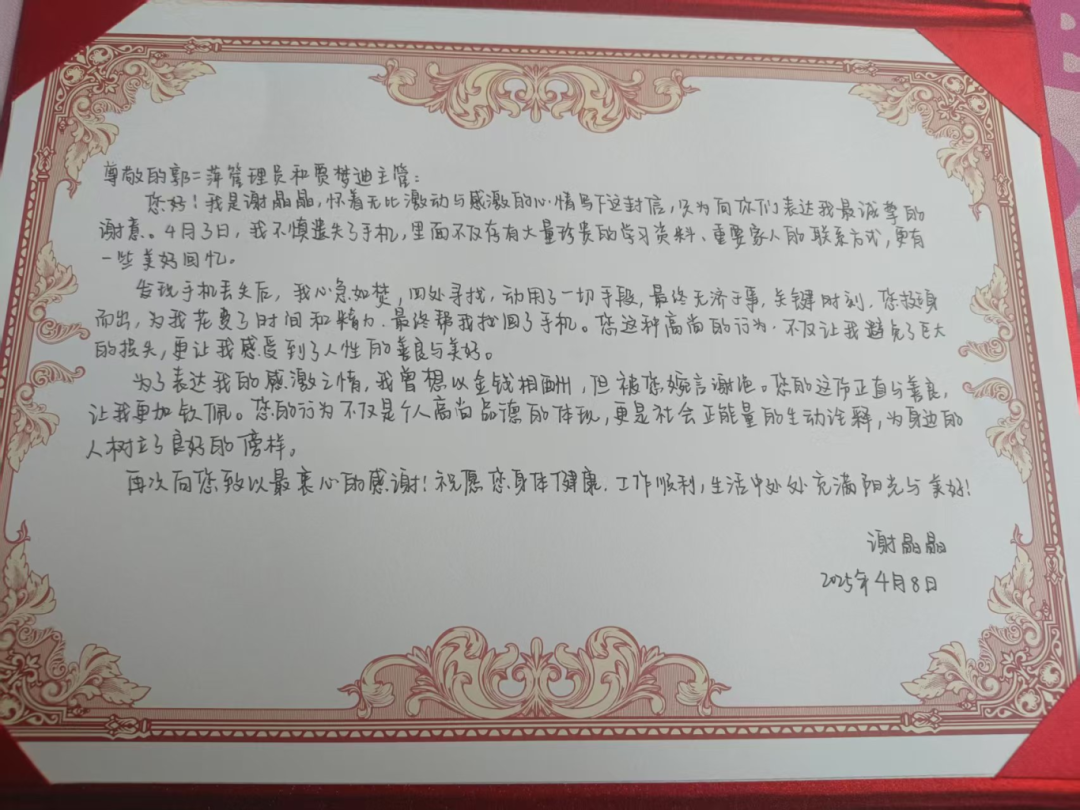 尊敬的郭二萍管理员和贾梦迪主管：
您好！我是谢晶晶，怀着无比激动与感激的心情写下这封信，只为向你们表达我最诚挚的
谢意。4月3日，我不慎遗失了手机，里面不仅存有大量珍贵的学习资料、重要家人的联系方式，更有
一些美好回忆。
发现手机丢失后，我心急如焚，四处寻找，动用了一切手段，最终无济于事，关键时刻，您挺身
而出，为我花费了时间和精力，最终帮我找回了手机。您这种高尚的行为，不仅让我避免了巨大
的损失，更让我感受到了人性的善良与美好。
为了表达我的感激之情，我曾想以金钱相酬，但被您婉言谢绝。您的这份正直与善良，
让我更加钦佩。您的行为不仅是个人高尚品德的体现，更是社会正能量的生动诠释，为身边的
人树立了良好的榜样。
再次向您致以最衷心的感谢！祝愿您身体健康，工作顺利，生活中处处充满阳光与美好！
谢晶晶
2025年4月8日